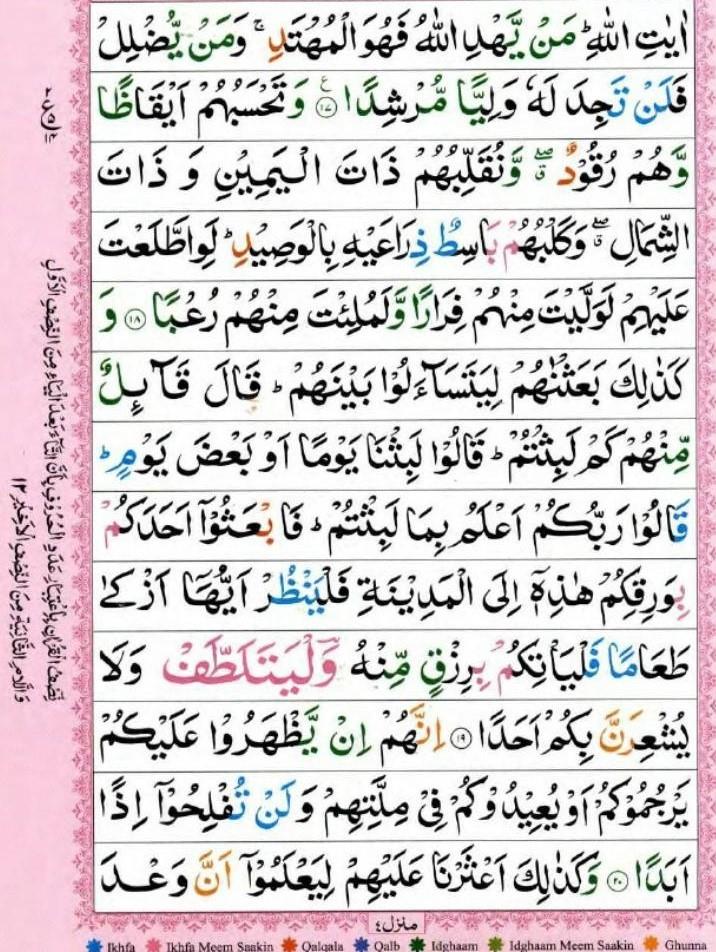 اٰيٰتِ اللّٰهِ ؕ مَنْ يَّهْدِ اللّٰهُ فَهُوَ الْمُهْتَدِ ۚ وَمَنْ يُّضْلِلْ
فَلَنْ تَجِدَ لَهٗ وَلِيًّا مُّرْشِدًا ﴿۱۷﴾ وَتَحْسَبُهُمْ اَيْقَاظًا
وَّهُمْ رُقُوْدٌ ۖ وَّنُقَلِّبُهُمْ ذَاتَ الْيَمِيْنِ وَ ذَاتَ
الشِّمَالِ ۖ وَكَلْبُهُمْ بَاسِطٌ ذِرَاعَيْهِ بِالْوَصِيْدِ ؕ لَوِاطَّلَعْتَ
عَلَيْهِمْ لَوَلَّيْتَ مِنْهُمْ فِرَارًا وَّلَمُلِئْتَ مِنْهُمْ رُعْبًا ﴿۱۸﴾ وَ
كَذٰلِكَ بَعَثْنٰهُمْ لِيَتَسَآءَلُوْا بَيْنَهُمْ ؕ قَالَ قَآئِلٌ
مِّنْهُمْ كَمْ لَبِثْتُمْ ؕ قَالُوْا لَبِثْنَا يَوْمًا اَوْ بَعْضَ يَوْمٍ ؕ
قَالُوْا رَبُّكُمْ اَعْلَمُ بِمَا لَبِثْتُمْ ؕ فَابْعَثُوْۤا اَحَدَكُمْ
بِوَرِقِكُمْ هٰذِهٖۤ اِلَى الْمَدِيْنَةِ فَلْيَنْظُرْ اَيُّهَاۤ اَزْكٰى
طَعَامًا فَلْيَاْتِكُمْ بِرِزْقٍ مِّنْهُ وَلْيَتَلَطَّفْ وَلَا
يُشْعِرَنَّ بِكُمْ اَحَدًا ﴿۱۹﴾ اِنَّهُمْ اِنْ يَّظْهَرُوْا عَلَيْكُمْ
يَرْجُمُوْكُمْ اَوْ يُعِيْدُوْكُمْ فِىْ مِلَّتِهِمْ وَلَنْ تُفْلِحُوْۤا اِذًا
اَبَدًا ﴿۲۰﴾ وَكَذٰلِكَ اَعْثَرْنَا عَلَيْهِمْ لِيَعْلَمُوْۤا اَنَّ وَعْدَ
منزل ٤
Ikhfa Ikhfa Meem Saakin Qalqala Qalb Idghaam Idghaam Meem Saakin Ghunna
نِصْفُ الْقُرْاٰنِ بِاعْتِبَارِ عَدَدِ الْحُرُوْفِ بِاَنَّ التَّآءَ بَعْدَ الْيَآءِ مِنَ النِّصْفِ الْاَوَّلِ
وَاللَّامَ الثَّانِيَةَ مِنَ النِّصْفِ الْاَخِيْرِ ۱۲